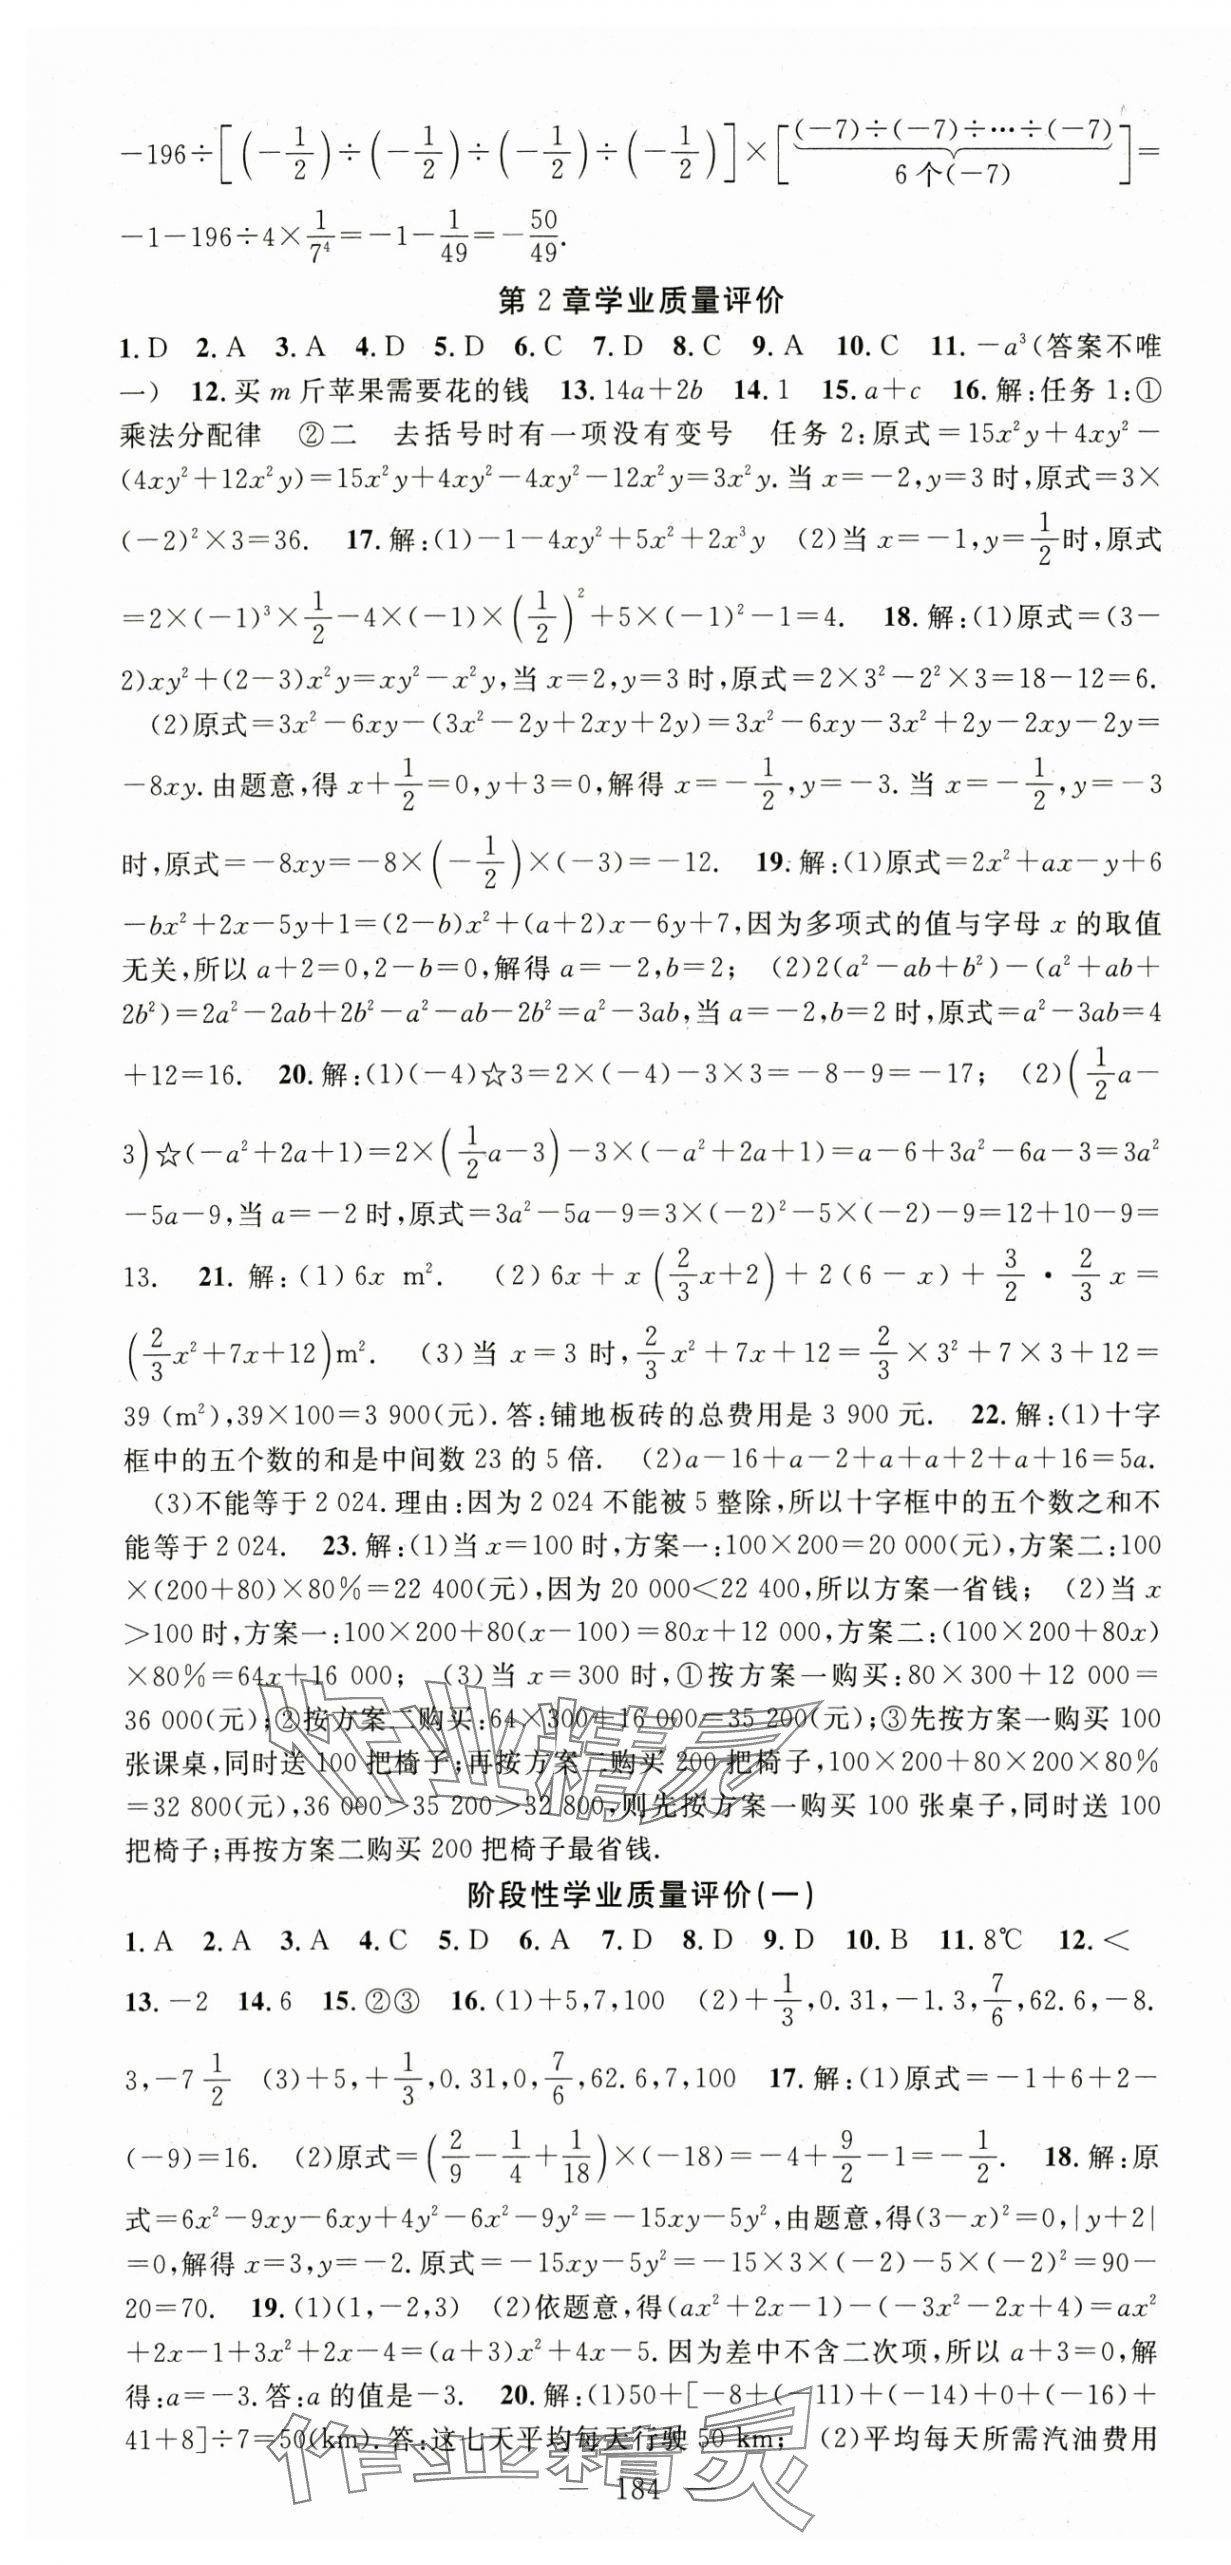 −196÷[(−1/2)÷(−1/2)÷(−1/2)÷(−1/2)]×[(−7)÷(−7)÷…÷(−7) 6个(−7)]=
−1−196÷4×1/7⁴=−1−1/49=−50/49.
第2章学业质量评价
1.D 2.A 3.A 4.D 5.D 6.C 7.D 8.C 9.A 10.C 11.−a³(答案不唯
一) 12.买m斤苹果需要花的钱 13.14a+2b 14.1 15.a+c 16.解:任务1:①
乘法分配律 ②二 去括号时有一项没有变号 任务2:原式=15x²y+4xy²−
(4xy²+12x²y)=15x²y+4xy²−4xy²−12x²y=3x²y.当x=−2,y=3时,原式=3×
(−2)²×3=36. 17.解:(1)−1−4xy²+5x²+2x³y (2)当x=−1,y=1/2时,原式
=2×(−1)³×1/2−4×(−1)×(1/2)²+5×(−1)²−1=4. 18.解:(1)原式=(3−
2)xy²+(2−3)x²y=xy²−x²y,当x=2,y=3时,原式=2×3²−2²×3=18−12=6.
(2)原式=3x²−6xy−(3x²−2y+2xy+2y)=3x²−6xy−3x²+2y−2xy−2y=
−8xy.由题意,得x+1/2=0,y+3=0,解得x=−1/2,y=−3.当x=−1/2,y=−3
时,原式=−8xy=−8×(−1/2)×(−3)=−12. 19.解:(1)原式=2x²+ax−y+6
−bx²+2x−5y+1=(2−b)x²+(a+2)x−6y+7,因为多项式的值与字母x的取值
无关,所以a+2=0,2−b=0,解得a=−2,b=2; (2)2(a²−ab+b²)−(a²+ab+
2b²)=2a²−2ab+2b²−a²−ab−2b²=a²−3ab,当a=−2,b=2时,原式=a²−3ab=4
+12=16. 20.解:(1)(−4)☆3=2×(−4)−3×3=−8−9=−17; (2)(1/2a−
3)☆(−a²+2a+1)=2×(1/2a−3)−3×(−a²+2a+1)=a−6+3a²−6a−3=3a²
−5a−9,当a=−2时,原式=3a²−5a−9=3×(−2)²−5×(−2)−9=12+10−9=
13. 21.解:(1)6x m². (2)6x+x(2/3x+2)+2(6−x)+3/2·2/3x=
(2/3x²+7x+12)m². (3)当x=3时,2/3x²+7x+12=2/3×3²+7×3+12=
39(m²),39×100=3 900(元).答:铺地板砖的总费用是3 900元. 22.解:(1)十字
框中的五个数的和是中间数23的5倍. (2)a−16+a−2+a+a+2+a+16=5a.
(3)不能等于2 024.理由:因为2 024不能被5整除,所以十字框中的五个数之和不
能等于2 024. 23.解:(1)当x=100时,方案一:100×200=20 000(元),方案二:100
×(200+80)×80%=22 400(元),因为20 000<22 400,所以方案一省钱; (2)当x
>100时,方案一:100×200+80(x−100)=80x+12 000,方案二:(100×200+80x)
×80%=64x+16 000; (3)当x=300时,①按方案一购买:80×300+12 000=
36 000(元);②按方案二购买:64×300+16 000=35 200(元);③先按方案一购买100
张课桌,同时送100把椅子;再按方案二购买200把椅子,100×200+80×200×80%
=32 800(元),36 000>35 200>32 800,则先按方案一购买100张桌子,同时送100
把椅子;再按方案二购买200把椅子最省钱.
作业精灵
阶段性学业质量评价(一)
1.A 2.A 3.A 4.C 5.D 6.A 7.D 8.D 9.D 10.B 11.8℃ 12.<
13.−2 14.6 15.②③ 16.(1)+5,7,100 (2)+1/3,0.31,−1.3,7/6,62.6,−8.
3,−7 1/2 (3)+5,+1/3,0.31,0,7/6,62.6,7,100 17.解:(1)原式=−1+6+2−
(−9)=16. (2)原式=(2/9−1/4+1/18)×(−18)=−4+9/2−1=−1/2. 18.解:原
式=6x²−9xy−6xy+4y²−6x²−9y²=−15xy−5y²,由题意,得(3−x)²=0,|y+2|
=0,解得x=3,y=−2.原式=−15xy−5y²=−15×3×(−2)−5×(−2)²=90−
20=70. 19.(1)(1,−2,3) (2)依题意,得(ax²+2x−1)−(−3x²−2x+4)=ax²
+2x−1+3x²+2x−4=(a+3)x²+4x−5.因为差中不含二次项,所以a+3=0,解
得:a=−3.答:a的值是−3. 20.解:(1)50+[−8+(−11)+(−14)+0+(−16)+
41+8]÷7=50(km).答:这七天平均每天行驶50 km; (2)平均每天所需汽油费用
作业精灵
— 184 —